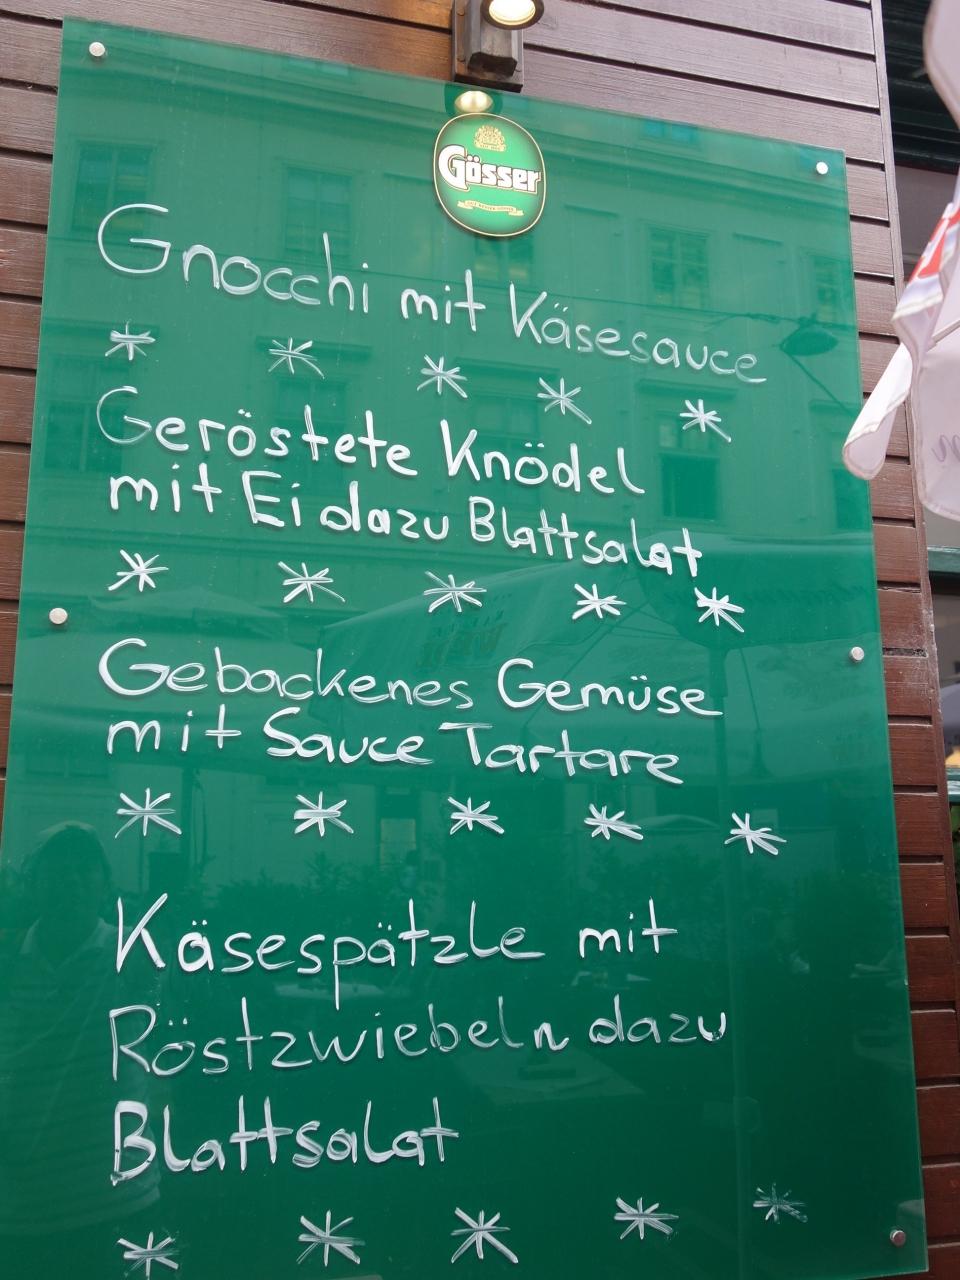 Gösser
Gnocchi mit Käsesauce
* * * * *
Geröstete Knödel
mit Ei dazu Blattsalat
* * * * *
Gebackenes Gemüse
mit Sauce Tartare
* * * * *
Käsespätzle mit
Röstzwiebeln dazu
Blattsalat
* * * * *